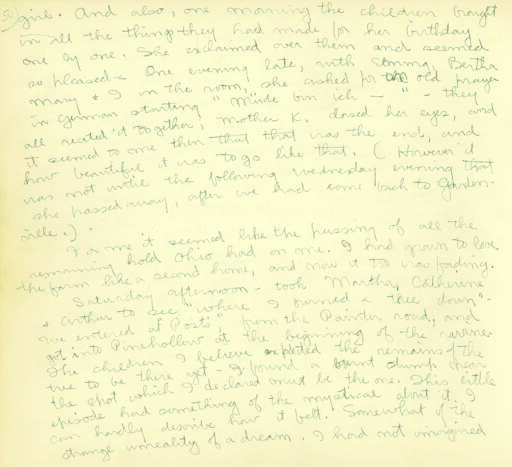 girl. And also, one morning the children brought
in all the things they had made for her birthday
one by one. She exclaimed over them and seemed
so pleased. One evening late, with Emma, Bertha
Mary & I in the room, she asked for an old prayer
in German starting "Müde bin ich — " - they
all recited it together, Mother K. closed her eyes, and
it seemed to me then that that was the end, and
how beautiful it was to go like that. (However it
was not until the following Wednesday evening that
she passed away, after we had come back to Garden-
ville.).
For me it seemed like the passing of all the
remaining hold Ohio had on me. I had grown to love
the farm like a second home, and now it too was fading.
Saturday afternoon - took Martha, Catherine
& Arthur to see "where I burned a tree down".
We entered at Post's, from the Painter road, and
got into Pinehollow at the beginning of the ravine
The children I believe expected the remains of the
tree to be there yet - I found a burnt stump near
the spot which I declared must be the one. This little
episode had something of the mystical about it. I
can hardly describe how it felt. Somewhat of the
strange unreality of a dream. I had not imagined